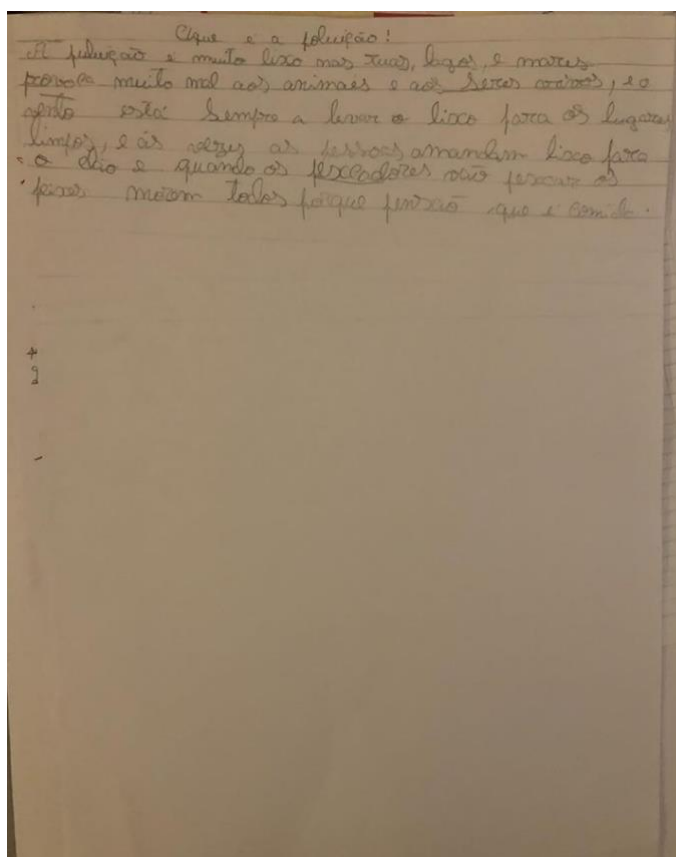 Oque e a poluição!
A puluição e muito lixo nas ruas, lagos, e mares
provoca muito mal aos animais e aos seres vivos, e o
vento está sempre a levar o lixo para os lugares
limpos, e ás vezes as pessoas amandam lixo para
o chão e quando os pescadores vão pescar os
peixes morrem todos porque pensão que e comida.